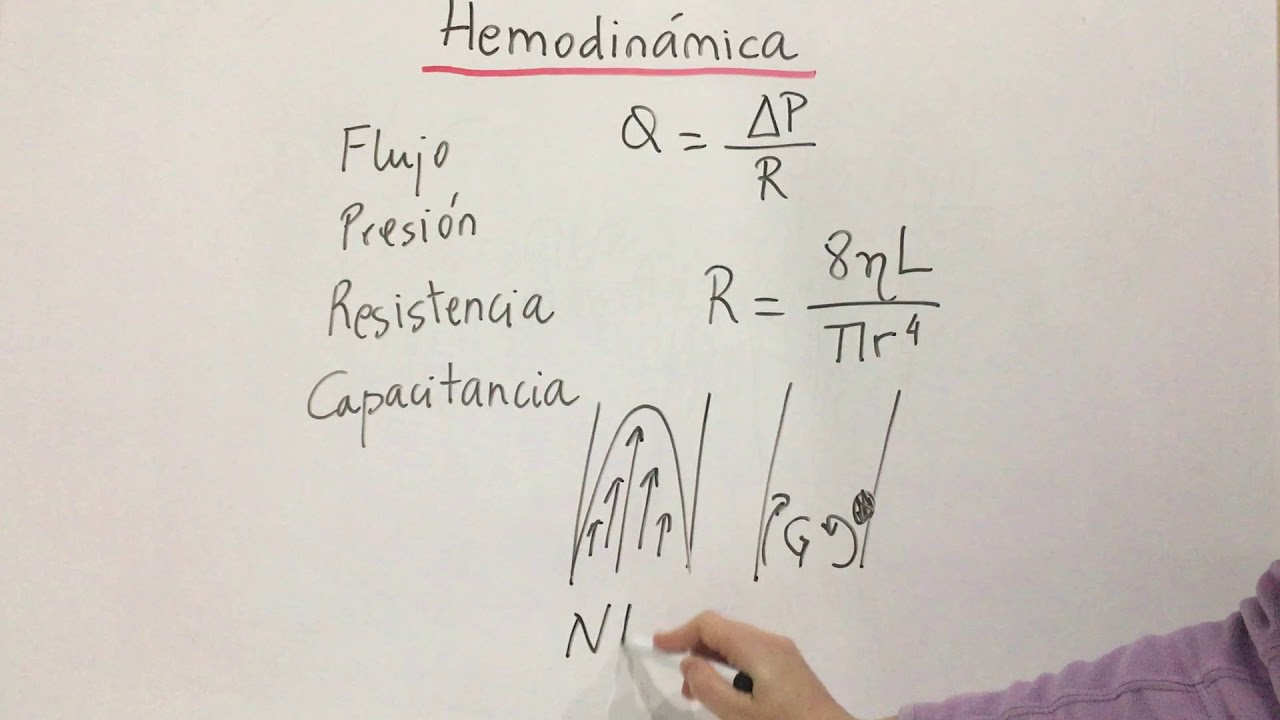 Hemodinámica
Flujo
Presión
Resistencia
Capacitancia
Q = ΔP / R
R = 8ηL / πr⁴
N